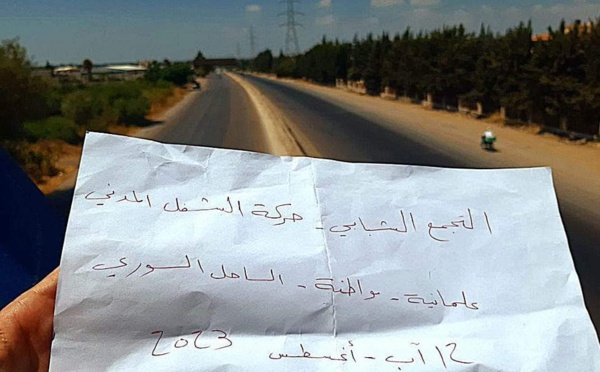 التجمع الشبابي - حركة الشغل المدني
علمانية - مواطنة - الساحل السوري
12 آب - أغسطس 2023